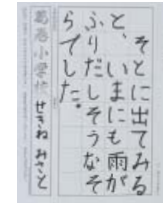 そとに出てみる
と、いまにも雨が
ふりだしそうなそ
らでした。
葛巻小学校 せきね みさと